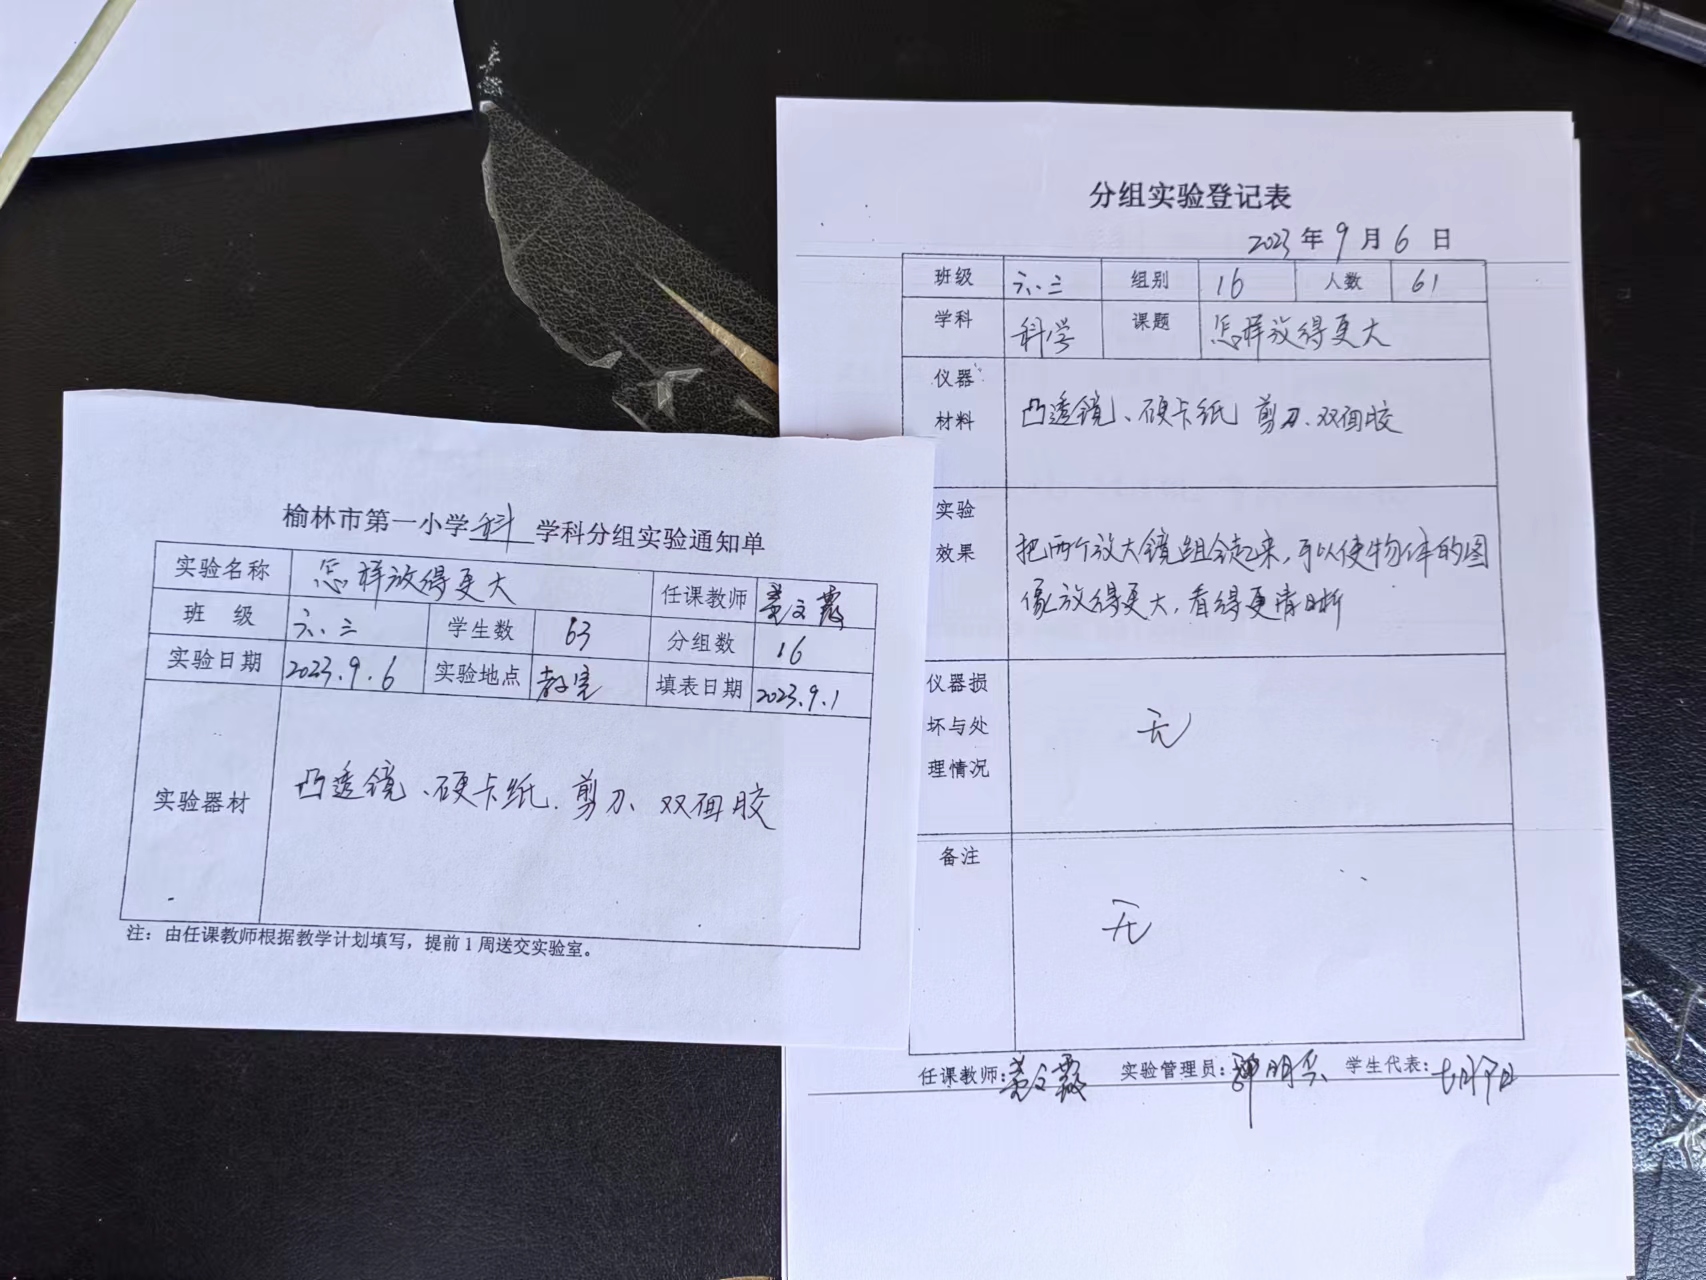 榆林市第一小学 科 学科分组实验通知单
实验名称 怎样放得更大 任课教师 姜文霞
班 级 六.三 学生数 63 分组数 16
实验日期 2023.9.6 实验地点 教室 填表日期 2023.9.1
实验器材 凸透镜、硬卡纸.剪刀、双面胶
注：由任课教师根据教学计划填写，提前1周送交实验室。
分组实验登记表
2023年9月6日
班级 六.三 组别 16 人数 61
学科 科学 课题 怎样放得更大
仪器
材料 凸透镜、硬卡纸 剪刀.双面胶
实验
效果 把两个放大镜组合起来,可以使物体的图
像放得更大,看得更清晰
仪器损
坏与处 无
理情况
备注
无
任课教师:姜文霞 实验管理员: 学生代表: